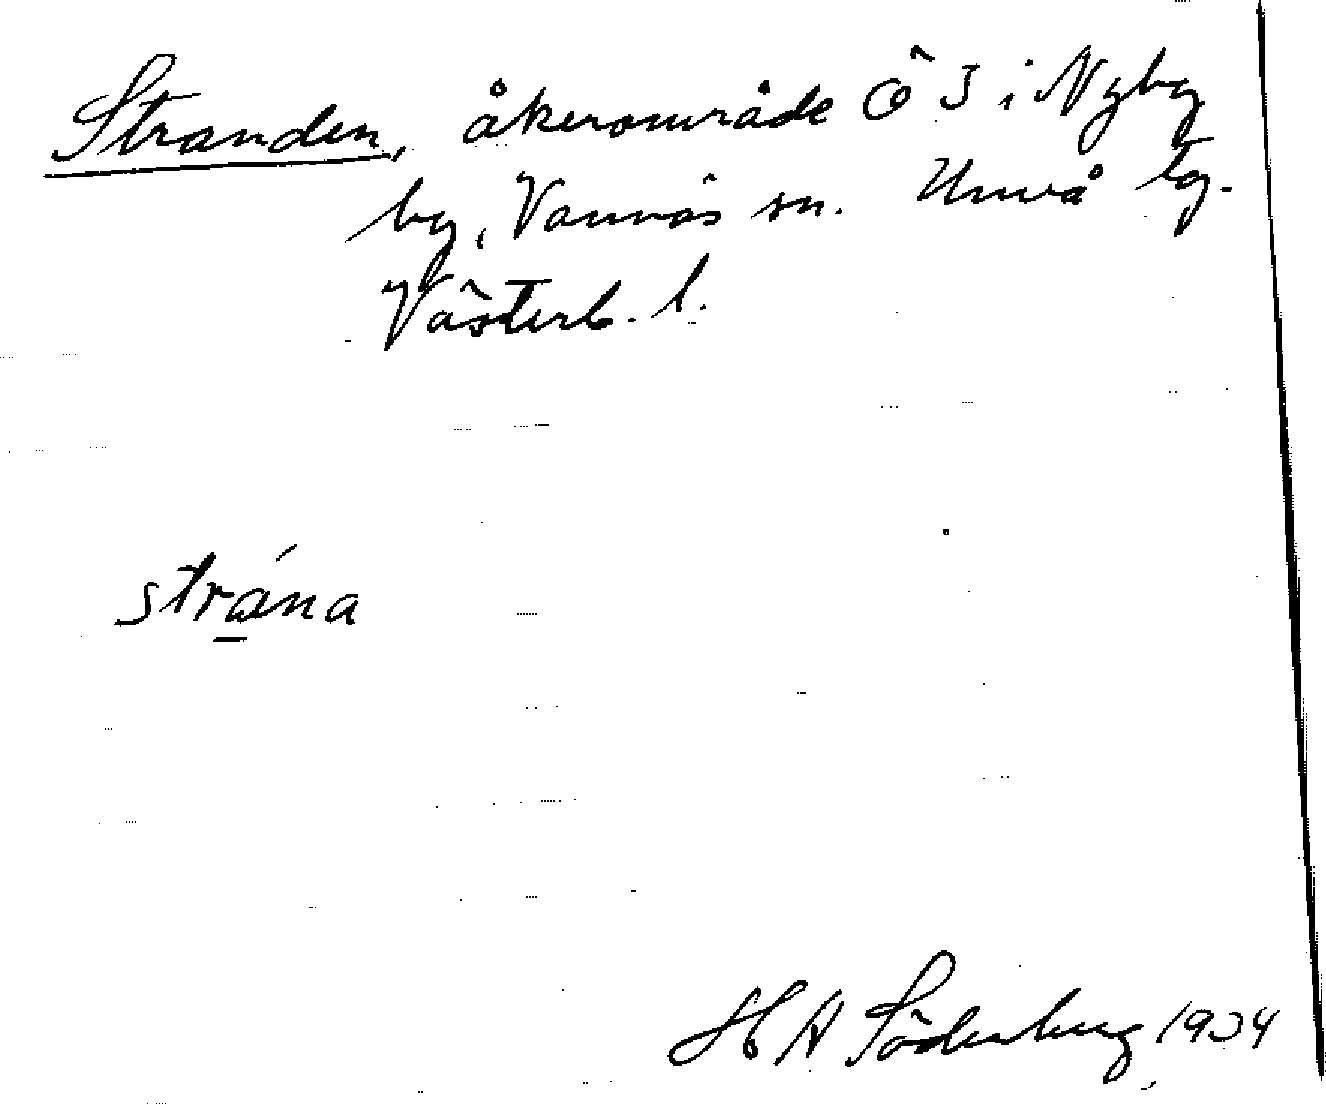 Stranden, åkerområde Ö 3 i Nyby
by, Vännäs sn. Umeå tg.
Västerb. l.
strána
H A Söderberg 1934